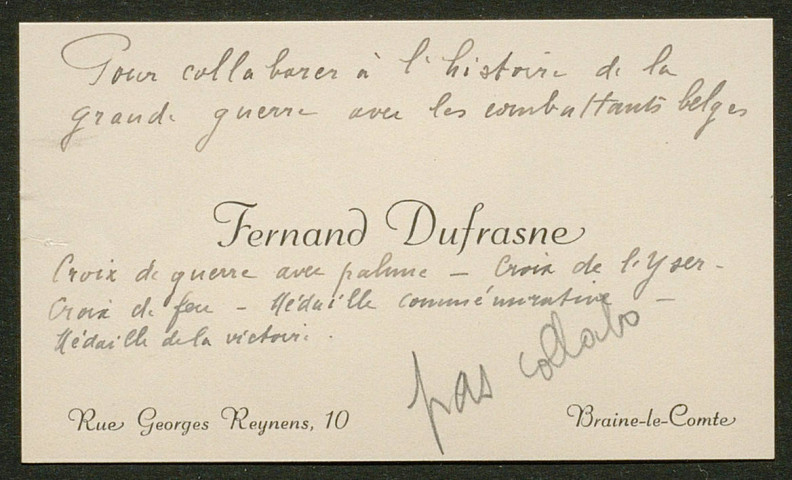 Pour collaborer à l'histoire de la
grande guerre avec les combattants belges
Fernand Dufrasne
Croix de guerre avec palme – Croix de l'Yser –
Croix de feu – Médaille commémorative –
Médaille de la victoire.
pas collabo
Rue Georges Reynens, 10
Braine-le-Comte